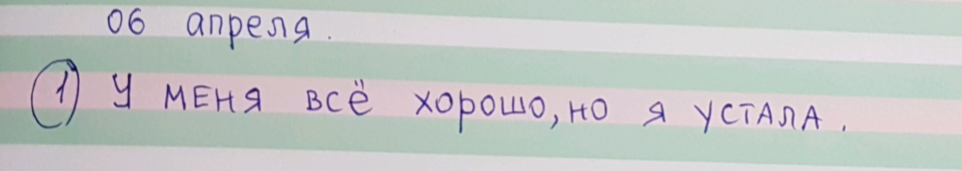 06 апреля.
1) У меня всё хорошо, но я устала.